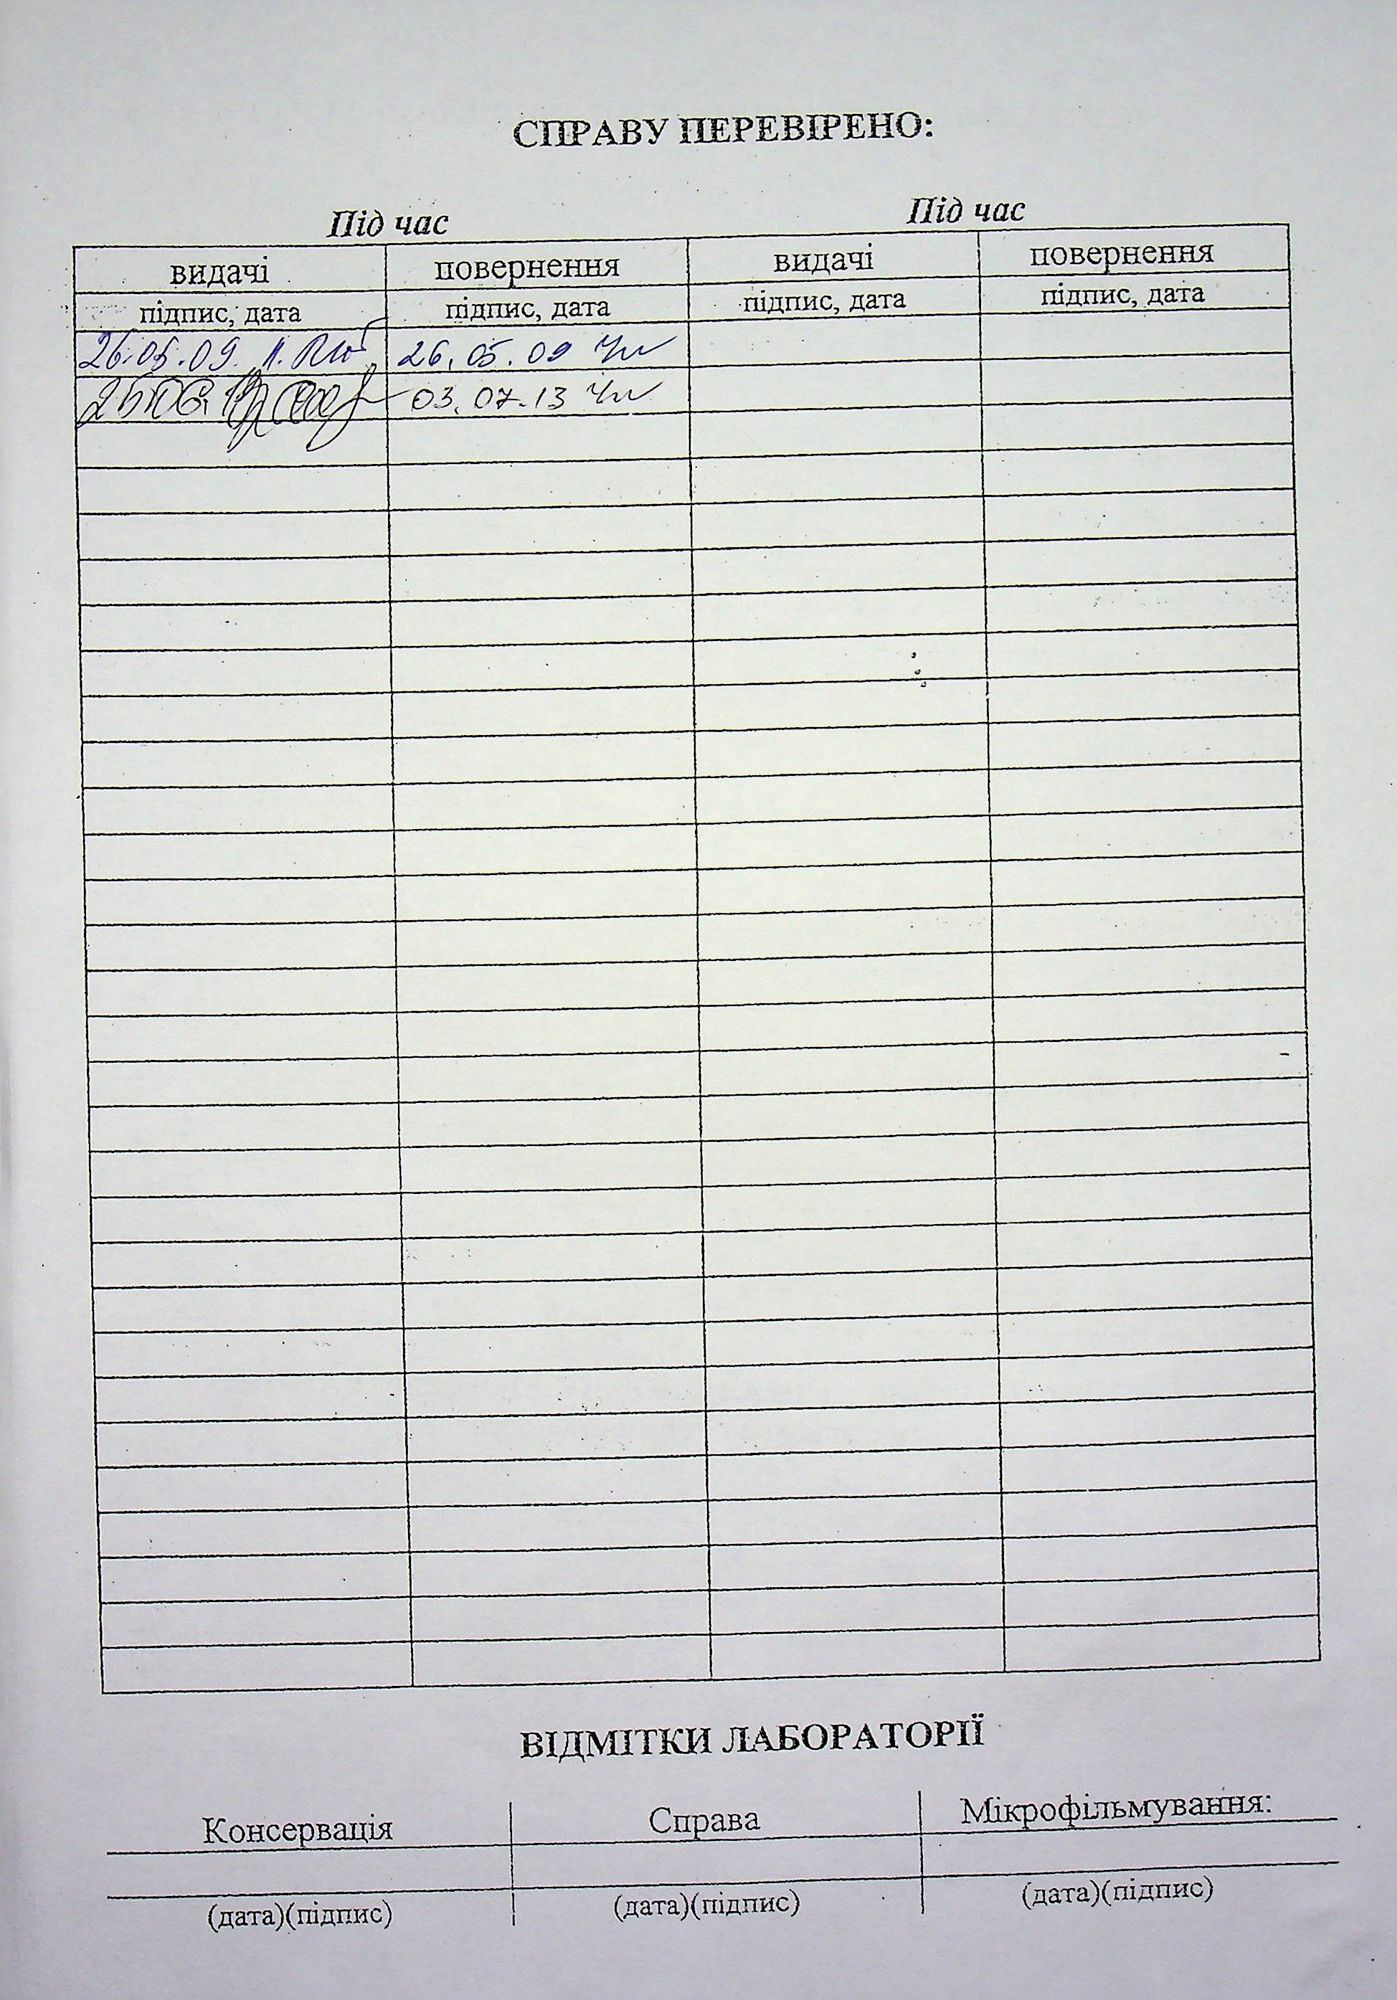 СПРАВУ ПЕРЕВІРЕНО:
Під час Під час
видачі повернення видачі повернення
підпис, дата підпис, дата підпис, дата підпис, дата
26.05.09. 26.05.09
03.07.13
ВІДМІТКИ ЛАБОРАТОРІЇ
Консервація Справа Мікрофільмування:
(дата)(підпис) (дата)(підпис) (дата)(підпис)